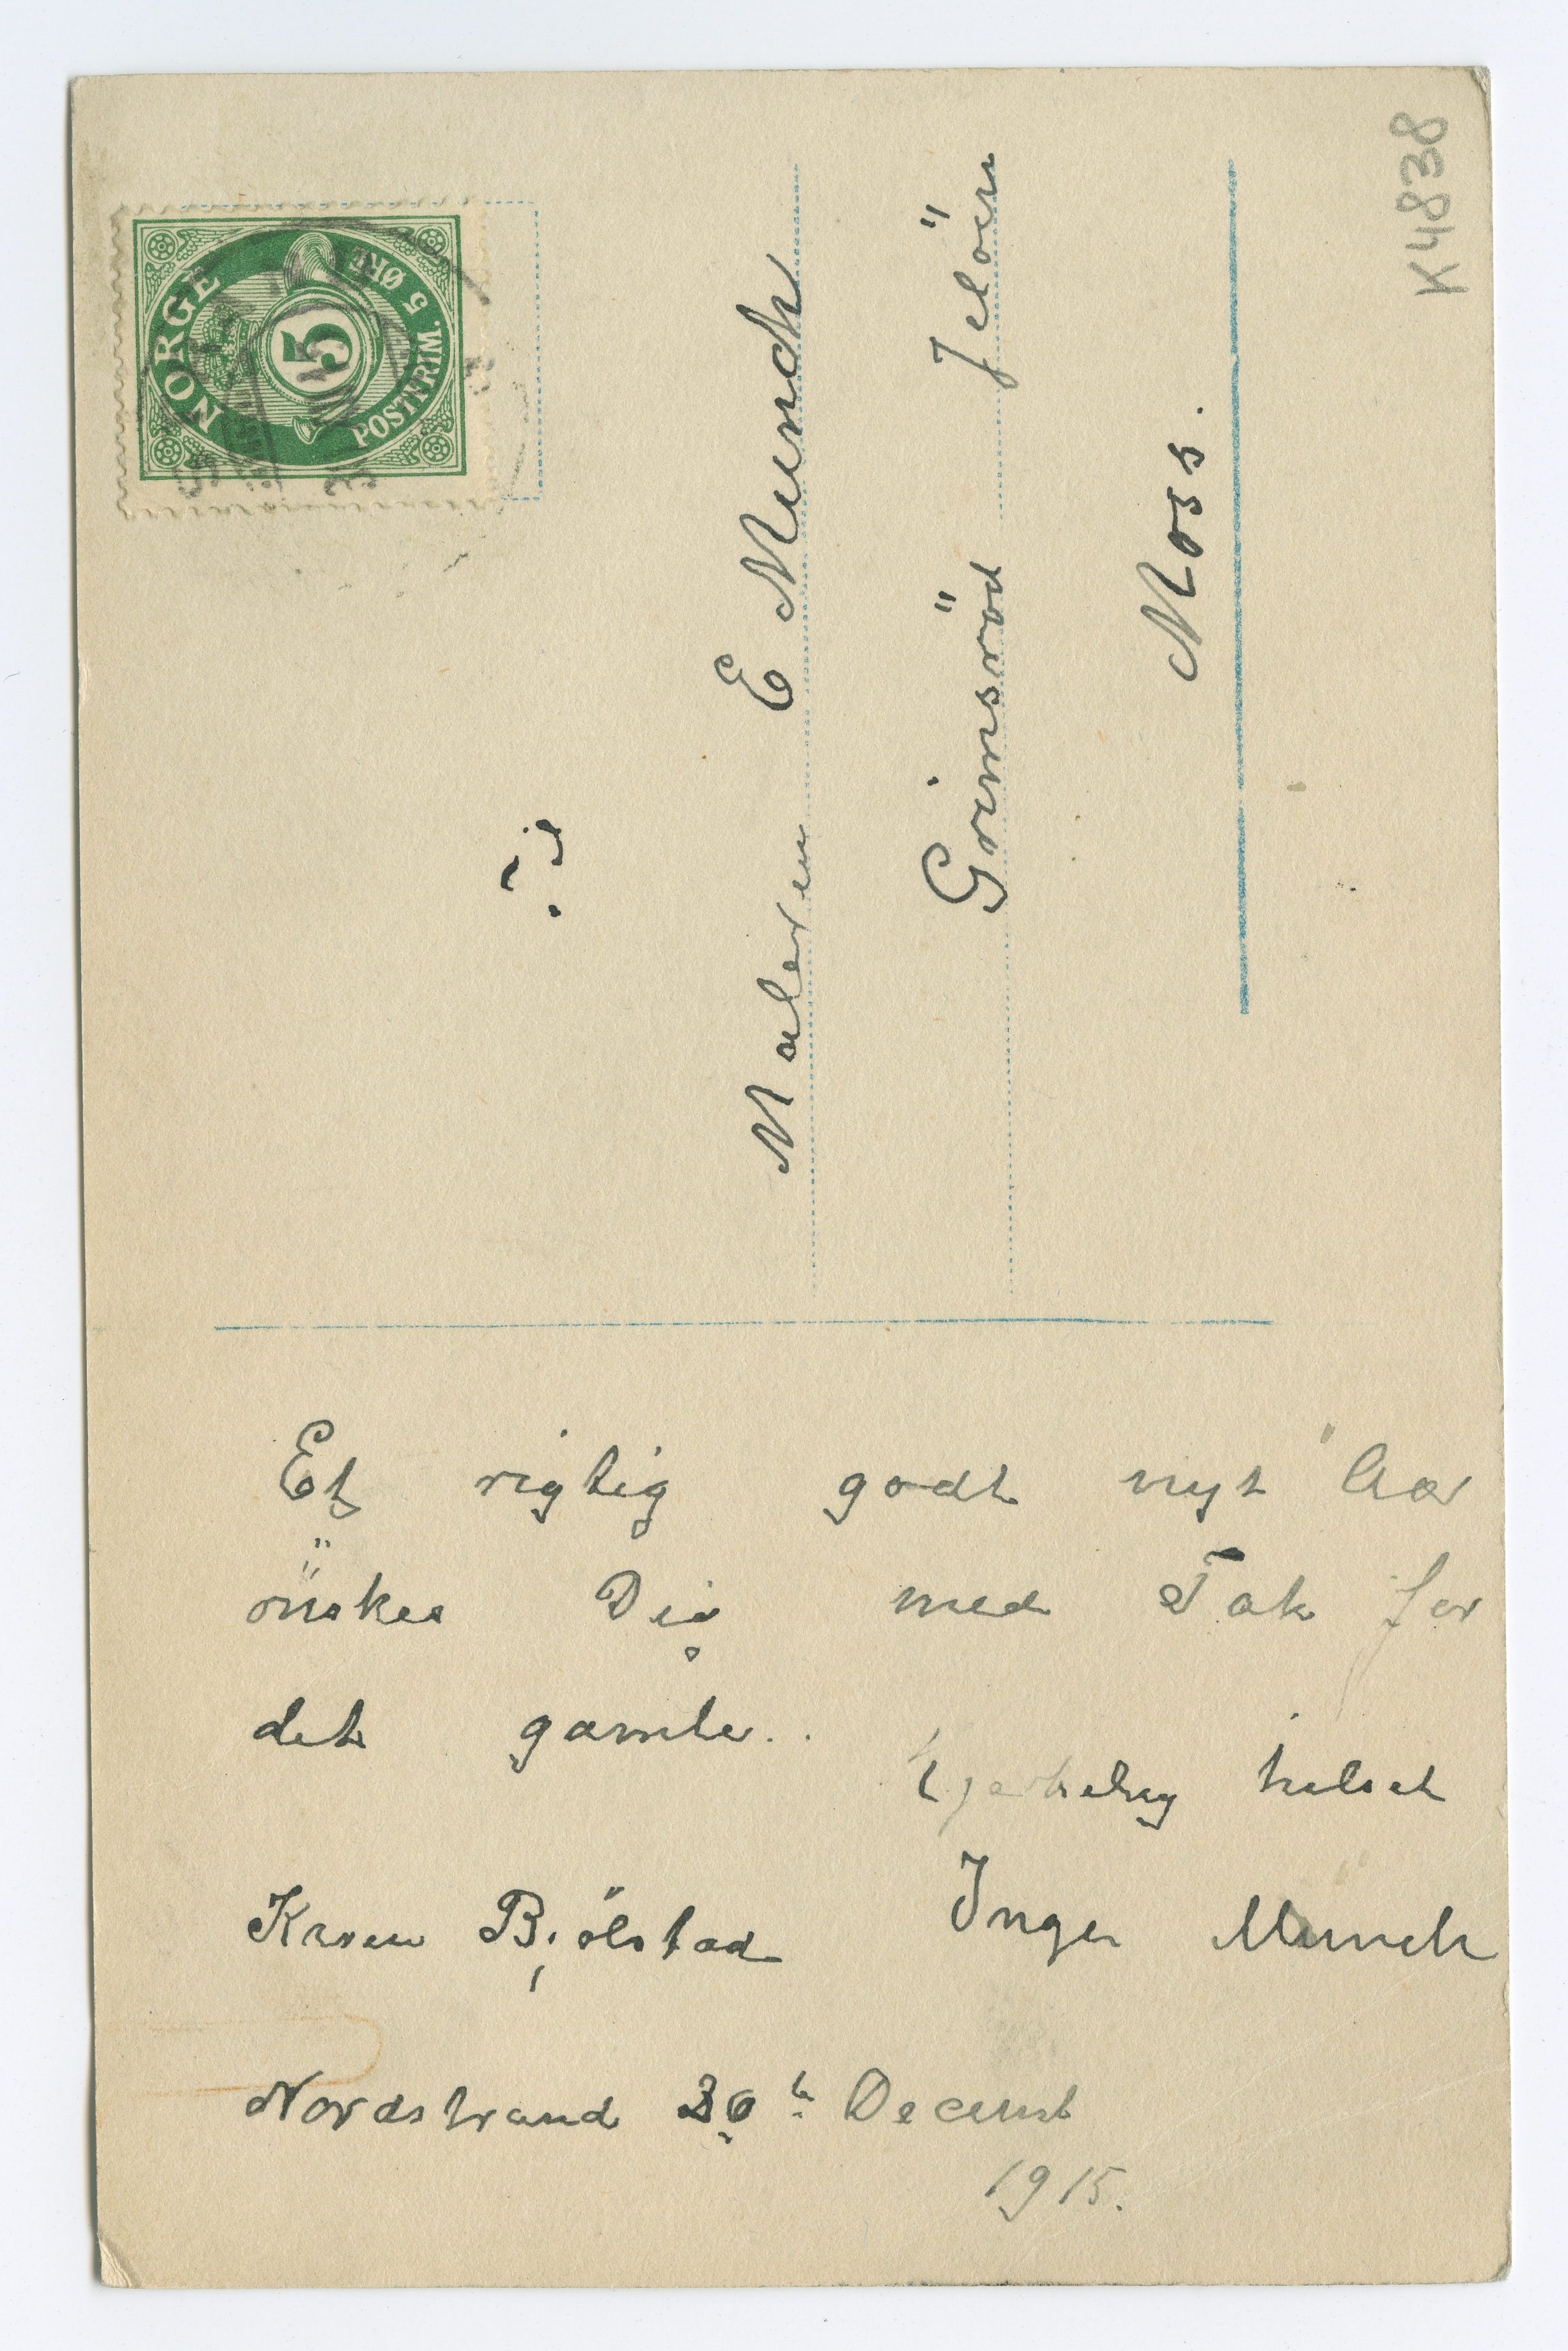 K4838
NORGE
POSTFRIM. 5 ØRE
5
Til
Maleren E Munch
Grimsröd Jelöen
Moss.
Et rigtig godt nyt Aar
önskes Dig med Tak for
det gamle.
hjertelig hilset
Karen Bjölstad Inger Munch
Nordstrand 30te Decemb
1915.